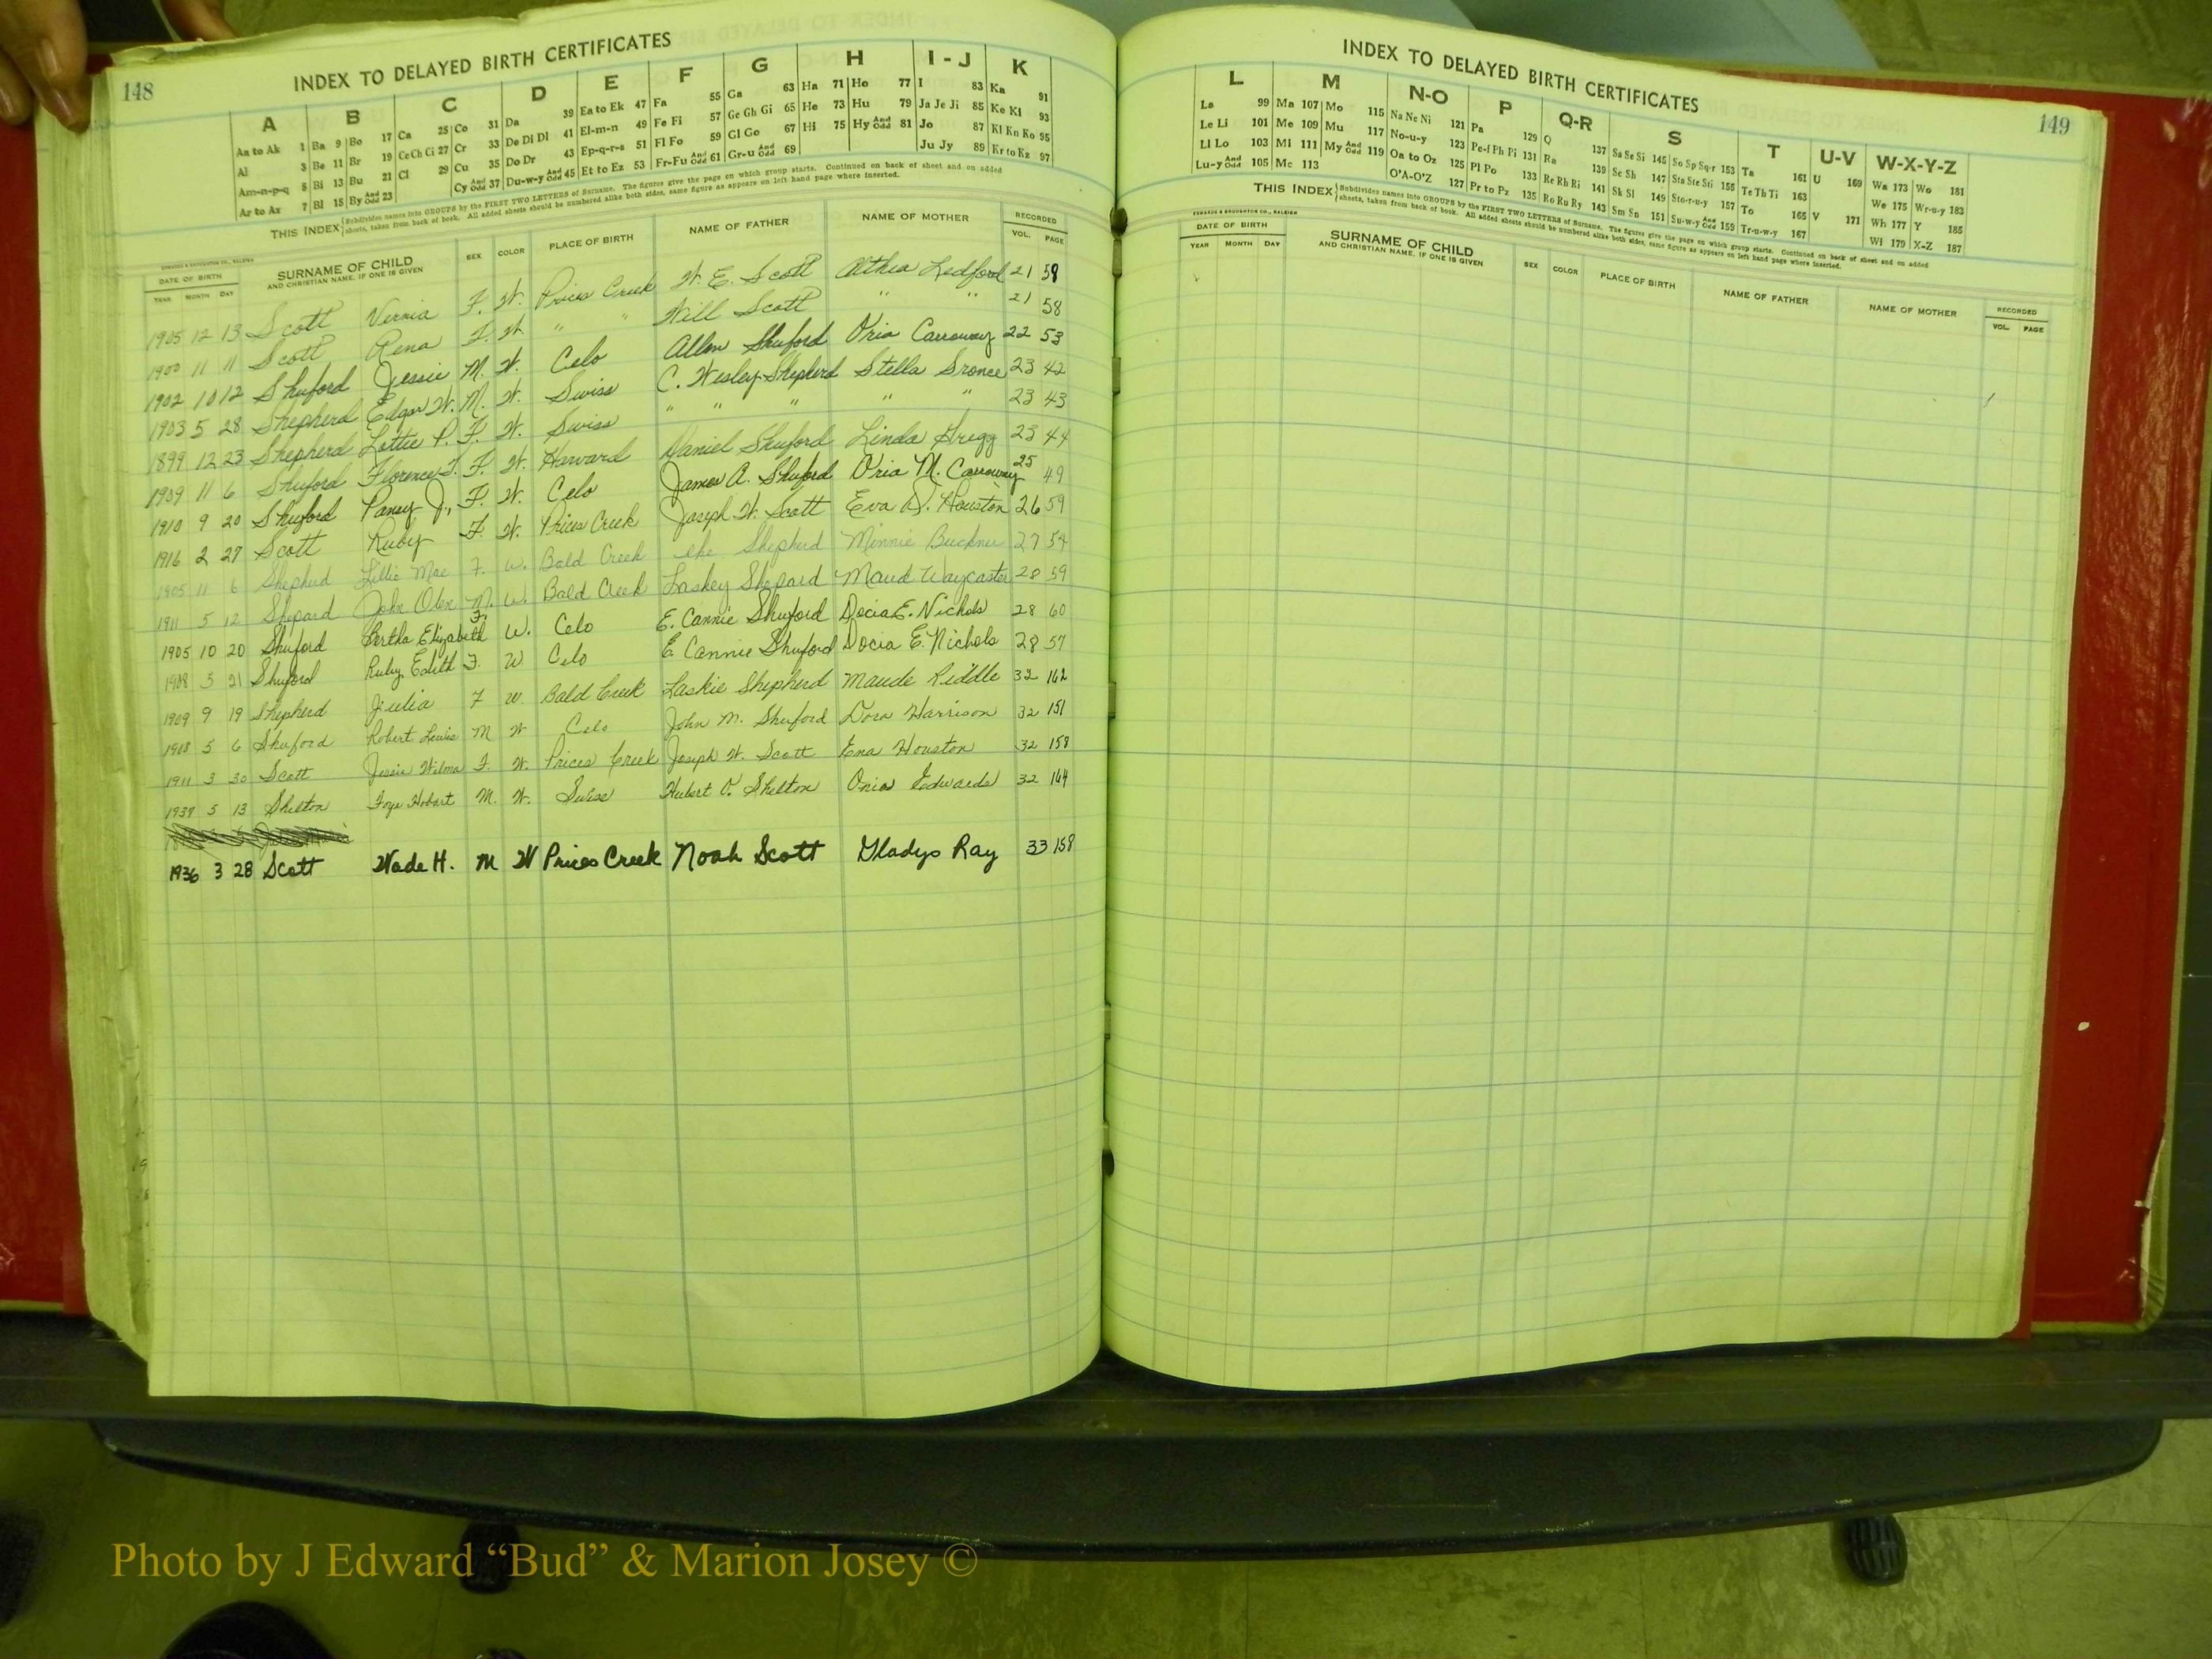 148
INDEX TO DELAYED BIRTH CERTIFICATES
A B C D E F G H I - J K
Aa to Ak 1 Ba 9 Bo 17 Ca 25 Co 31 Da 39 Ea to Ek 47 Fa 55 Ga 63 Ha 71 Ho 77 I 83 Ka 91
Al 3 Be 11 Br 19 Ce Ch Ci 27 Cr 33 De Di Dl 41 El-m-n 49 Fe Fi 57 Ge Gh Gi 65 He 73 Hu 79 Ja Je Ji 85 Ke Kl 93
Am-n-p-q 5 Bi 13 Bu 21 Cl 29 Cu 35 Do Dr 43 Ep-q-r-s 51 Fl Fo 59 Gl Go 67 Hi 75 Hy And Odd 81 Jo 87 Kl Kn Ko 95
Ar to Az 7 Bl 15 By And Odd 23 Cy And Odd 37 Du-w-y And Odd 45 Et to Ez 53 Fr-Fu And Odd 61 Gr-u And Odd 69 Ju Jy 89 Kr to Kz 97
THIS INDEX Subdivides names into GROUPS by the FIRST TWO LETTERS of Surname. The figures give the page on which group starts. Continued on back of sheet and on added
sheets, taken from back of book. All added sheets should be numbered alike both sides, same figure as appears on left hand page where inserted.
EDWARDS & BROUGHTON CO., RALEIGH
DATE OF BIRTH SURNAME OF CHILD SEX COLOR PLACE OF BIRTH NAME OF FATHER NAME OF MOTHER RECORDED
YEAR MONTH DAY AND CHRISTIAN NAME, IF ONE IS GIVEN VOL. PAGE
1905 12 13 Scott Vernia F. W. Prices Creek W. E. Scott Althea Ledford 21 59
1900 11 11 Scott Rena F. W. " " Will Scott " " 21 58
1902 10 12 Shuford Jessie M. W. Celo Allen Shuford Oria Carroway 22 53
1903 5 28 Shepherd Edgar W. M. W. Swiss C. Wesley Shepherd Stella Sronce 23 42
1899 12 23 Shepherd Lottie P. F. W. Swiss " " " " " 23 43
1909 11 6 Shuford Florence F. W. Harvard Daniel Shuford Linda Gregg 23 44
1910 9 20 Shuford Pansy J., F. W. Celo James A. Shuford Oria M. Carroway 25 49
1916 2 27 Scott Ruby F. W. Prices Creek Joseph W. Scott Eva D. Houston 26 59
1905 11 6 Shepherd Lillie Mae F. W. Bald Creek Shepherd Minnie Buckner 27 54
1911 5 12 Shepard John Olen M. W. Bald Creek Laskey Shepard Maud Waycaster 28 59
1905 10 20 Shuford Bertha Elizabeth F. W. Celo E. Cannie Shuford Docia E. Nichols 28 60
1908 5 21 Shuford Ruby Edith F. W Celo E. Cannie Shuford Docia E. Nichols 28 57
1909 9 19 Shepherd Julia F W. Bald Creek Laskie Shepherd Maude Riddle 32 162
1908 5 6 Shuford Robert Lewis M W Celo John M. Shuford Dora Harrison 32 151
1911 3 30 Scott Jessie Wilma F. W. Prices Creek Joseph W. Scott Ena Houston 32 158
1937 5 13 Shelton Foye Hobart M. W. Swiss Hubert O. Shelton Onia Edwards 32 164
1936 3 28 Scott Wade H. M W Prices Creek Noah Scott Gladys Ray 33 158
149
INDEX TO DELAYED BIRTH CERTIFICATES
L M N-O P Q-R S T U-V W-X-Y-Z
La 99 Ma 107 Mo 115 Na Ne Ni 121 Pa 129 Q 137 Sa Se Si 145 So Sp Sq-r 153 Ta 161 U 169 Wa 173 Wo 181
Le Li 101 Me 109 Mu 117 No-u-y 123 Pe-f Ph Pi 131 Ra 139 Sc Sh 147 Sta Ste Sti 155 Te Th Ti 163 We 175 Wr-u-y 183
Ll Lo 103 Mi 111 My And Odd 119 Oa to Oz 125 Pl Po 133 Re Rh Ri 141 Sk Sl 149 Sto-r-u-y 157 To 165 V 171 Wh 177 Y 185
Lu-y And Odd 105 Mc 113 O'A-O'Z 127 Pr to Pz 135 Ro Ru Ry 143 Sm Sn 151 Su-w-y And Odd 159 Tr-u-w-y 167 Wi 179 X-Z 187
THIS INDEX Subdivides names into GROUPS by the FIRST TWO LETTERS of Surname. The figures give the page on which group starts. Continued on back of sheet and on added
sheets, taken from back of book. All added sheets should be numbered alike both sides, same figure as appears on left hand page where inserted.
EDWARDS & BROUGHTON CO., RALEIGH
DATE OF BIRTH SURNAME OF CHILD SEX COLOR PLACE OF BIRTH NAME OF FATHER NAME OF MOTHER RECORDED
YEAR MONTH DAY AND CHRISTIAN NAME, IF ONE IS GIVEN VOL. PAGE
Photo by J Edward “Bud” & Marion Josey ©